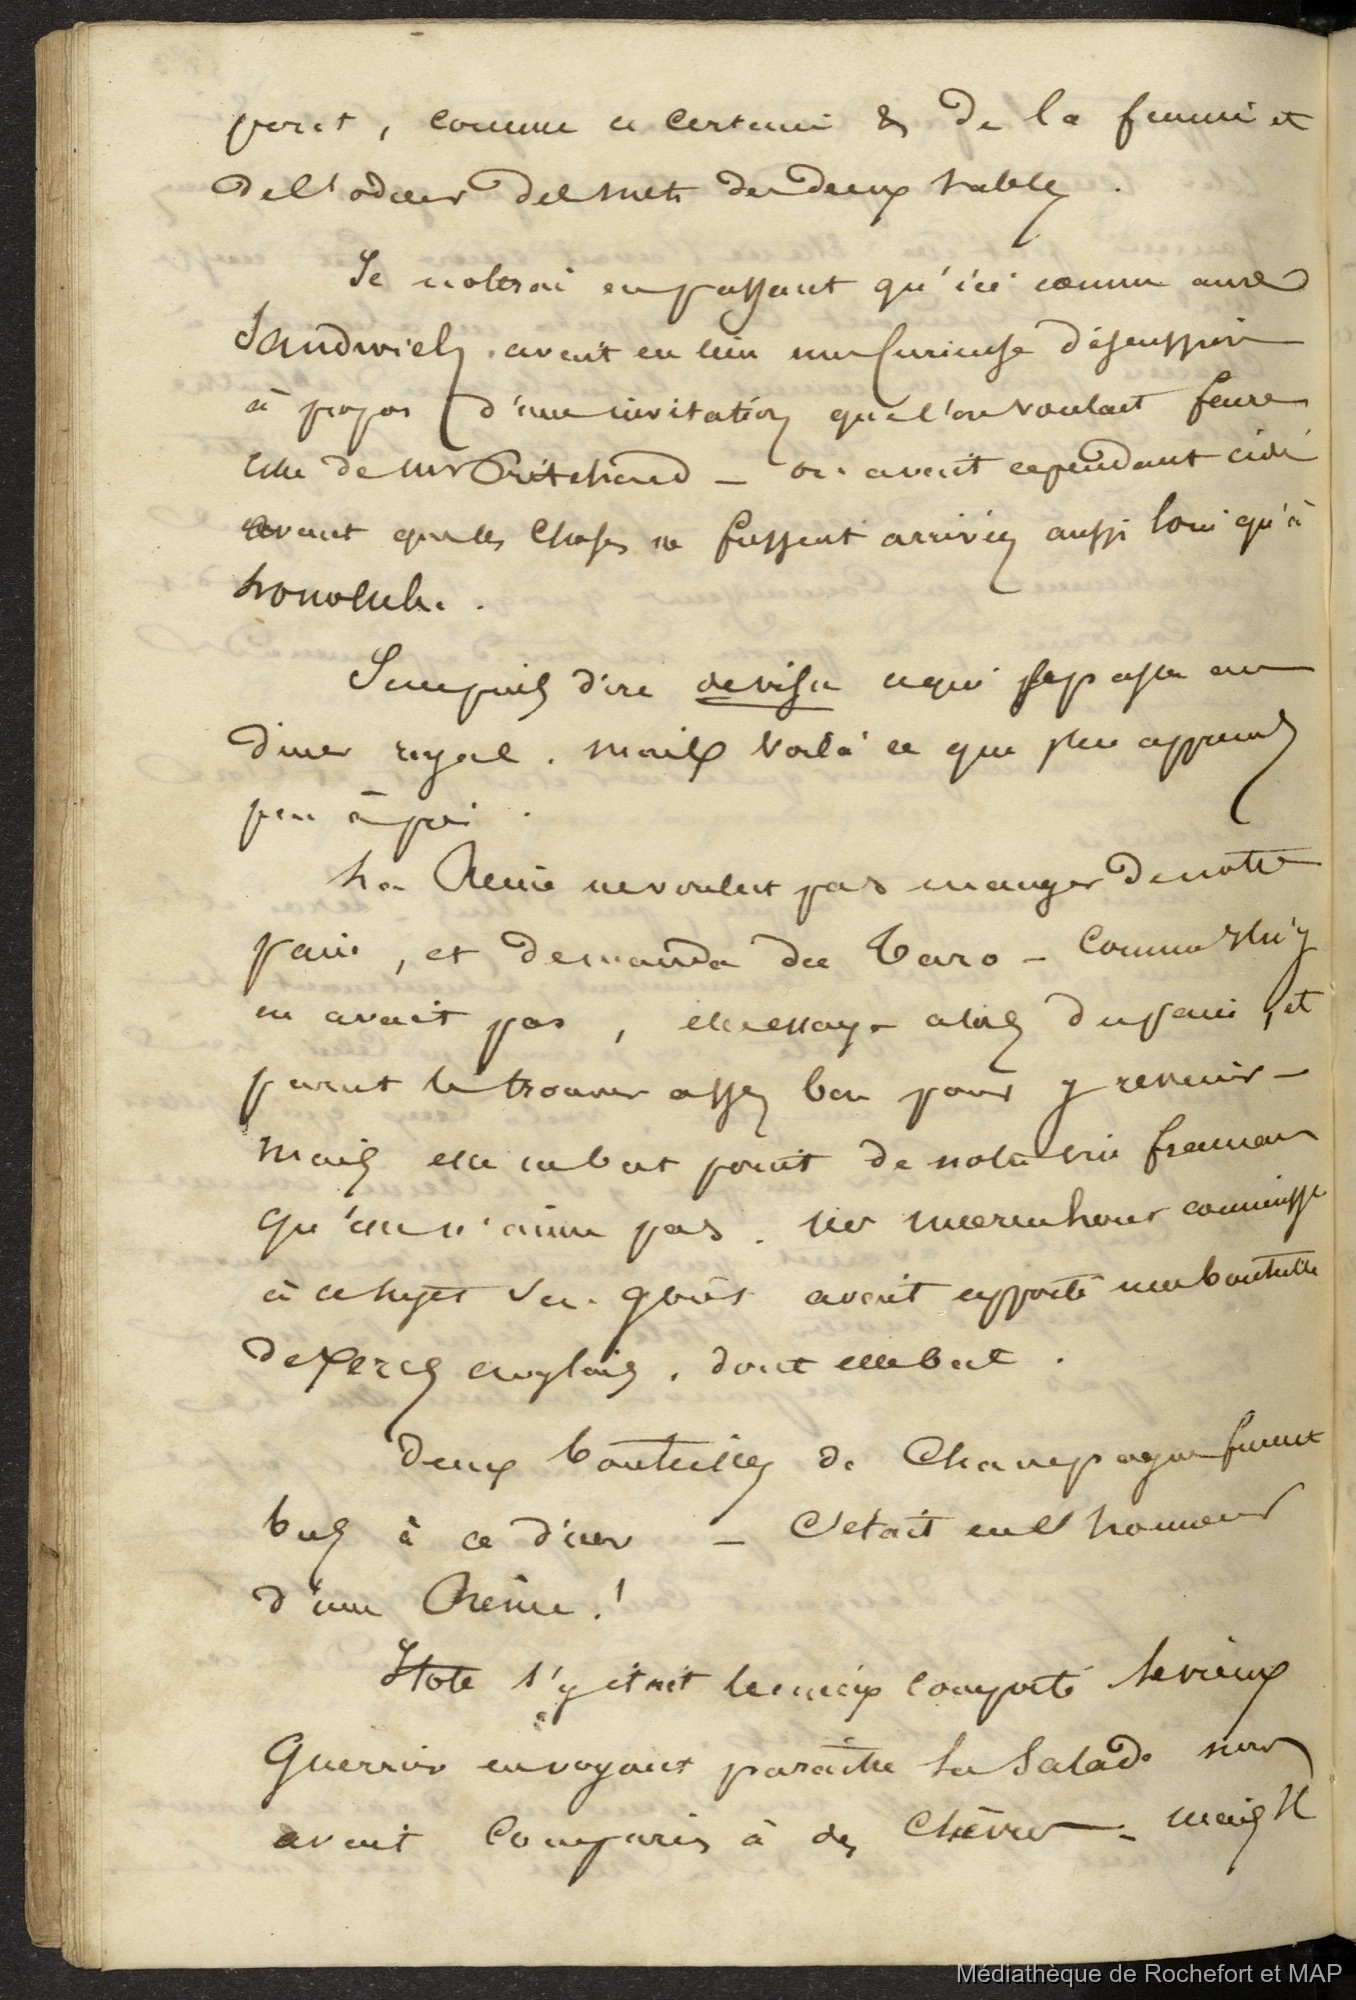 parut, comme a certaine & de la fumée et
de l'odeur des mets des deux tables.
Je noterai en passant qu'ici comme aux
Sandwichs, avait eu lieu une furieuse discussion
à propos d'une invitation que l'on voulait faire
de Mr Pritchard _ on avait cependant cédé
avant que les choses ne fussent arrivées aussi loin qu'à
honolulu.
Je ne puis dire de visu ce qui se passa au
diner royal. mais voilà ce que j'en appris
peu à peu.
La Reine ne voulut pas manger de notre
pain, et demanda du Taro _ Comme il n'y
en avait pas, elle essaya alors du pain, et
parut le trouver assez bon pour y revenir _
mais elle ne but point de notre vin français
qu'elle n'aime pas. Mr Moerenhout connaissant
à ce sujet ses goûts avait apporté une bouteille
de Xeres anglais, dont elle but.
Deux bouteilles de Champagne furent
bues à ce diner _ C'était en l'honneur
d'une Reine!
Itote s'y était le mieux comporté le vieux
Guerrier en voyant paraître la Salade nous
avait comparés à des Chèvres _ mais il
Médiathèque de Rochefort et MAP